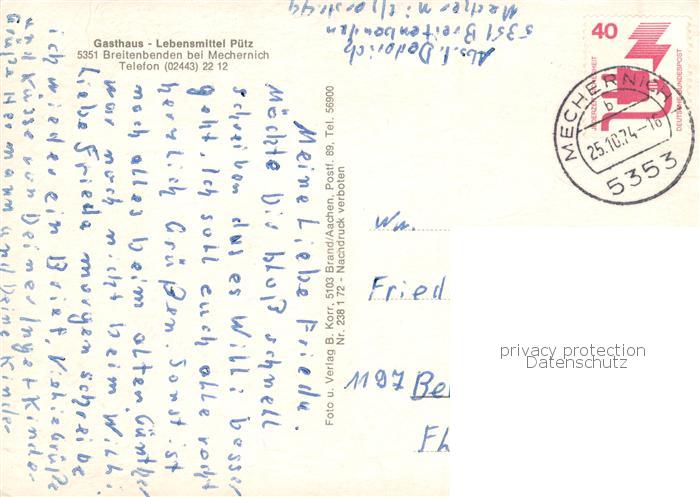 Gasthaus - Lebensmittel Pütz
5351 Breitenbenden bei Mechernich
Telefon (02443) 22 12
Abs. I. Dederich
5351 Breitenbenden
Meine Liebe Frieda.
Möchte Dir bloß schnell
schreiben das es Willi besser
geht. Ich soll euch alle recht
herzlich Grüßen. Sonst ist
noch alles beim alten. Günther
war noch nicht beim Willi
Liebe Frieda morgen schreibe
ich wieder ein Brief, Viele Grüße
und Küsse von Deiner Inge + Kinder
Grüße Hermann und Deine Kinder
Foto u. Verlag B. Korr, 5103 Brand/Aachen, Postf. 89, Tel. 56900
Nr. 238 1 72 - Nachdruck verboten
40
JEDERZEIT SICHERHEIT
DEUTSCHE BUNDESPOST
MECHERNICH
b
25.10.74-16
5353
Wn.
Fried
1197 Be
privacy protection
Datenschutz